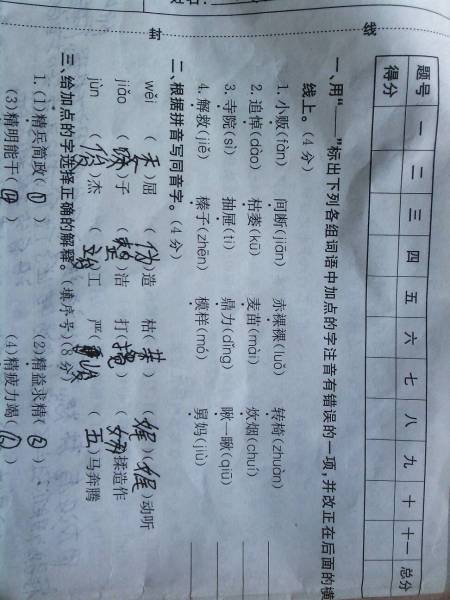 线
封
题号 一 二 三 四 五 六 七 八 九 十 十一 总分
得分
一、用"——"标出下列各组词语中加点的字注音有错误的一项,并改正在后面的横
线上。(4分)
1. 小贩(fàn) 间断(jiān) 赤裸裸(luǒ) 转椅(zhuàn)
2. 追悼(dào) 枯萎(kū) 麦苗(mài) 炊烟(chuí)
3. 寺院(sì) 抽屉(ti) 鼎力(dǐng) 瞅一瞅(qiū)
4. 解救(jiě) 榛子(zhēn) 模样(mó) 舅妈(jiù)
二、根据拼音写同音字。(4分)
wěi ( )屈 (伪)造 枯( ) (娓)(娓)动听
jiǎo ( )子 ( )洁 打(搅) ( )揉造作
jùn (俊)杰 (竣)工 严(峻) (五)马奔腾
三、给加点的字选择正确的解释。(填序号)(8分)
1. (1)精兵简政( ) (2)精益求精( )
(3)精明能干(④) (4)精疲力竭( )